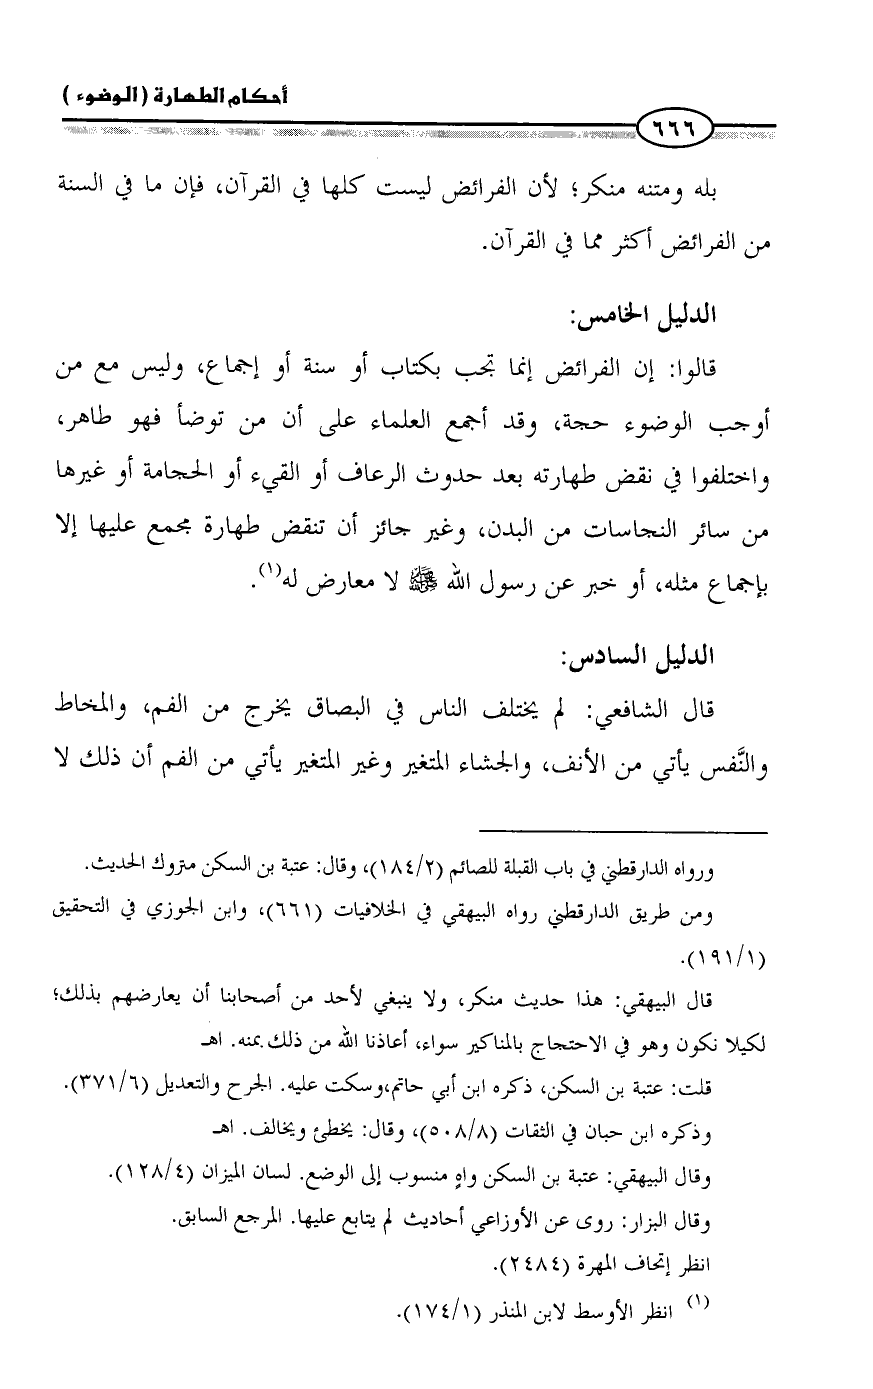 أحكام الطهارة (الوضوء)
٦٦٦
بله ومتنه منكر؛ لأن الفرائض ليست كلها في القرآن، فإن ما في السنة
من الفرائض أكثر مما في القرآن.
الدليل الخامس:
قالوا: إن الفرائض إنما تجب بكتاب أو سنة أو إجماع، وليس مع من
أوجب الوضوء حجة، وقد أجمع العلماء على أن من توضأ فهو طاهر،
واختلفوا في نقض طهارته بعد حدوث الرعاف أو القيء أو الحجامة أو غيرها
من سائر النجاسات من البدن، وغير جائز أن تنقض طهارة مجمع عليها إلا
بإجماع مثله، أو خبر عن رسول الله ﷺ لا معارض له(١).
الدليل السادس:
قال الشافعي: لم يختلف الناس في البصاق يخرج من الفم، والمخاط
والنَّفس يأتي من الأنف، والجشاء المتغير وغير المتغير يأتي من الفم أن ذلك لا
ورواه الدارقطني في باب القبلة للصائم (١٨٤/٢)، وقال: عتبة بن السكن متروك الحديث.
ومن طريق الدارقطني رواه البيهقي في الخلافيات (٦٦١)، وابن الجوزي في التحقيق
(١٩١/١).
قال البيهقي: هذا حديث منكر، ولا ينبغي لأحد من أصحابنا أن يعارضهم بذلك؛
لكيلا نكون وهو في الاحتجاج بالمناكير سواء، أعاذنا الله من ذلك بمنه. اهـ
قلت: عتبة بن السكن، ذكره ابن أبي حاتم،وسكت عليه. الجرح والتعديل (٣٧١/٦).
وذكره ابن حبان في الثقات (٥٠٨/٨)، وقال: يخطئ ويخالف. اهـ
وقال البيهقي: عتبة بن السكن واهٍ منسوب إلى الوضع. لسان الميزان (١٢٨/٤).
وقال البزار: روى عن الأوزاعي أحاديث لم يتابع عليها. المرجع السابق.
انظر إتحاف المهرة (٢٤٨٤).
(١) انظر الأوسط لابن المنذر (١٧٤/١).